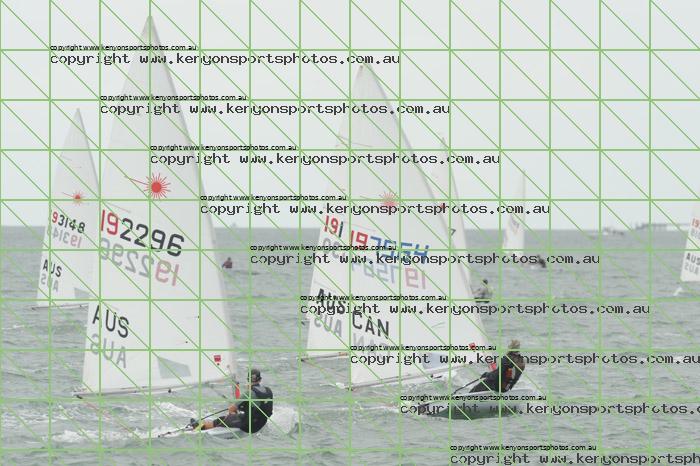 copyright www.kenyonsportsphotos.com.au
copyright www.kenyonsportsphotos.com.au
copyright www.kenyonsportsphotos.com.au
copyright www.kenyonsportsphotos.com.au
copyright www.kenyonsportsphotos.com.au
copyright www.kenyonsportsphotos.com.au
copyright www.kenyonsportsphotos.com.au
copyright www.kenyonsportsphotos.com.au
93148
192296
191
AUS
copyright www.kenyonsportsphotos.com.au
copyright www.kenyonsportsphotos.com.au
AUS
AUS
CAN
copyright www.kenyonsportsphotos.com.au
copyright www.kenyonsportsphotos.com.au
copyright www.kenyonsportsphotos.com.au
copyright www.kenyonsportsphotos.com.au
copyright www.kenyonsportsphotos.com.au
copyright www.kenyonsportsphotos.com.au
copyright www.kenyonsportsphotos.com.au
copyright www.kenyonsportsph